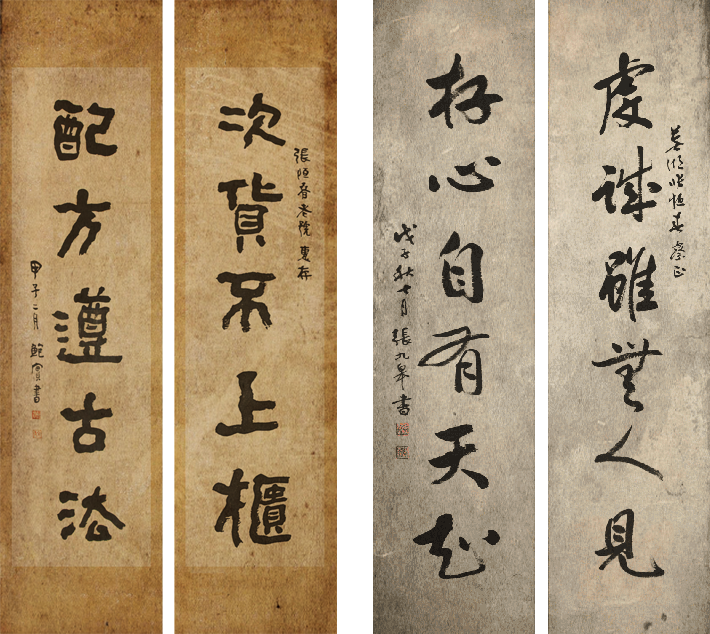 恒春
虔誠雖無人見
存心自有天知
戊子秋七月 張九皋書
張恒春老號 惠存
次貨不上櫃
配方遵古法
甲子二月 鮑寅書